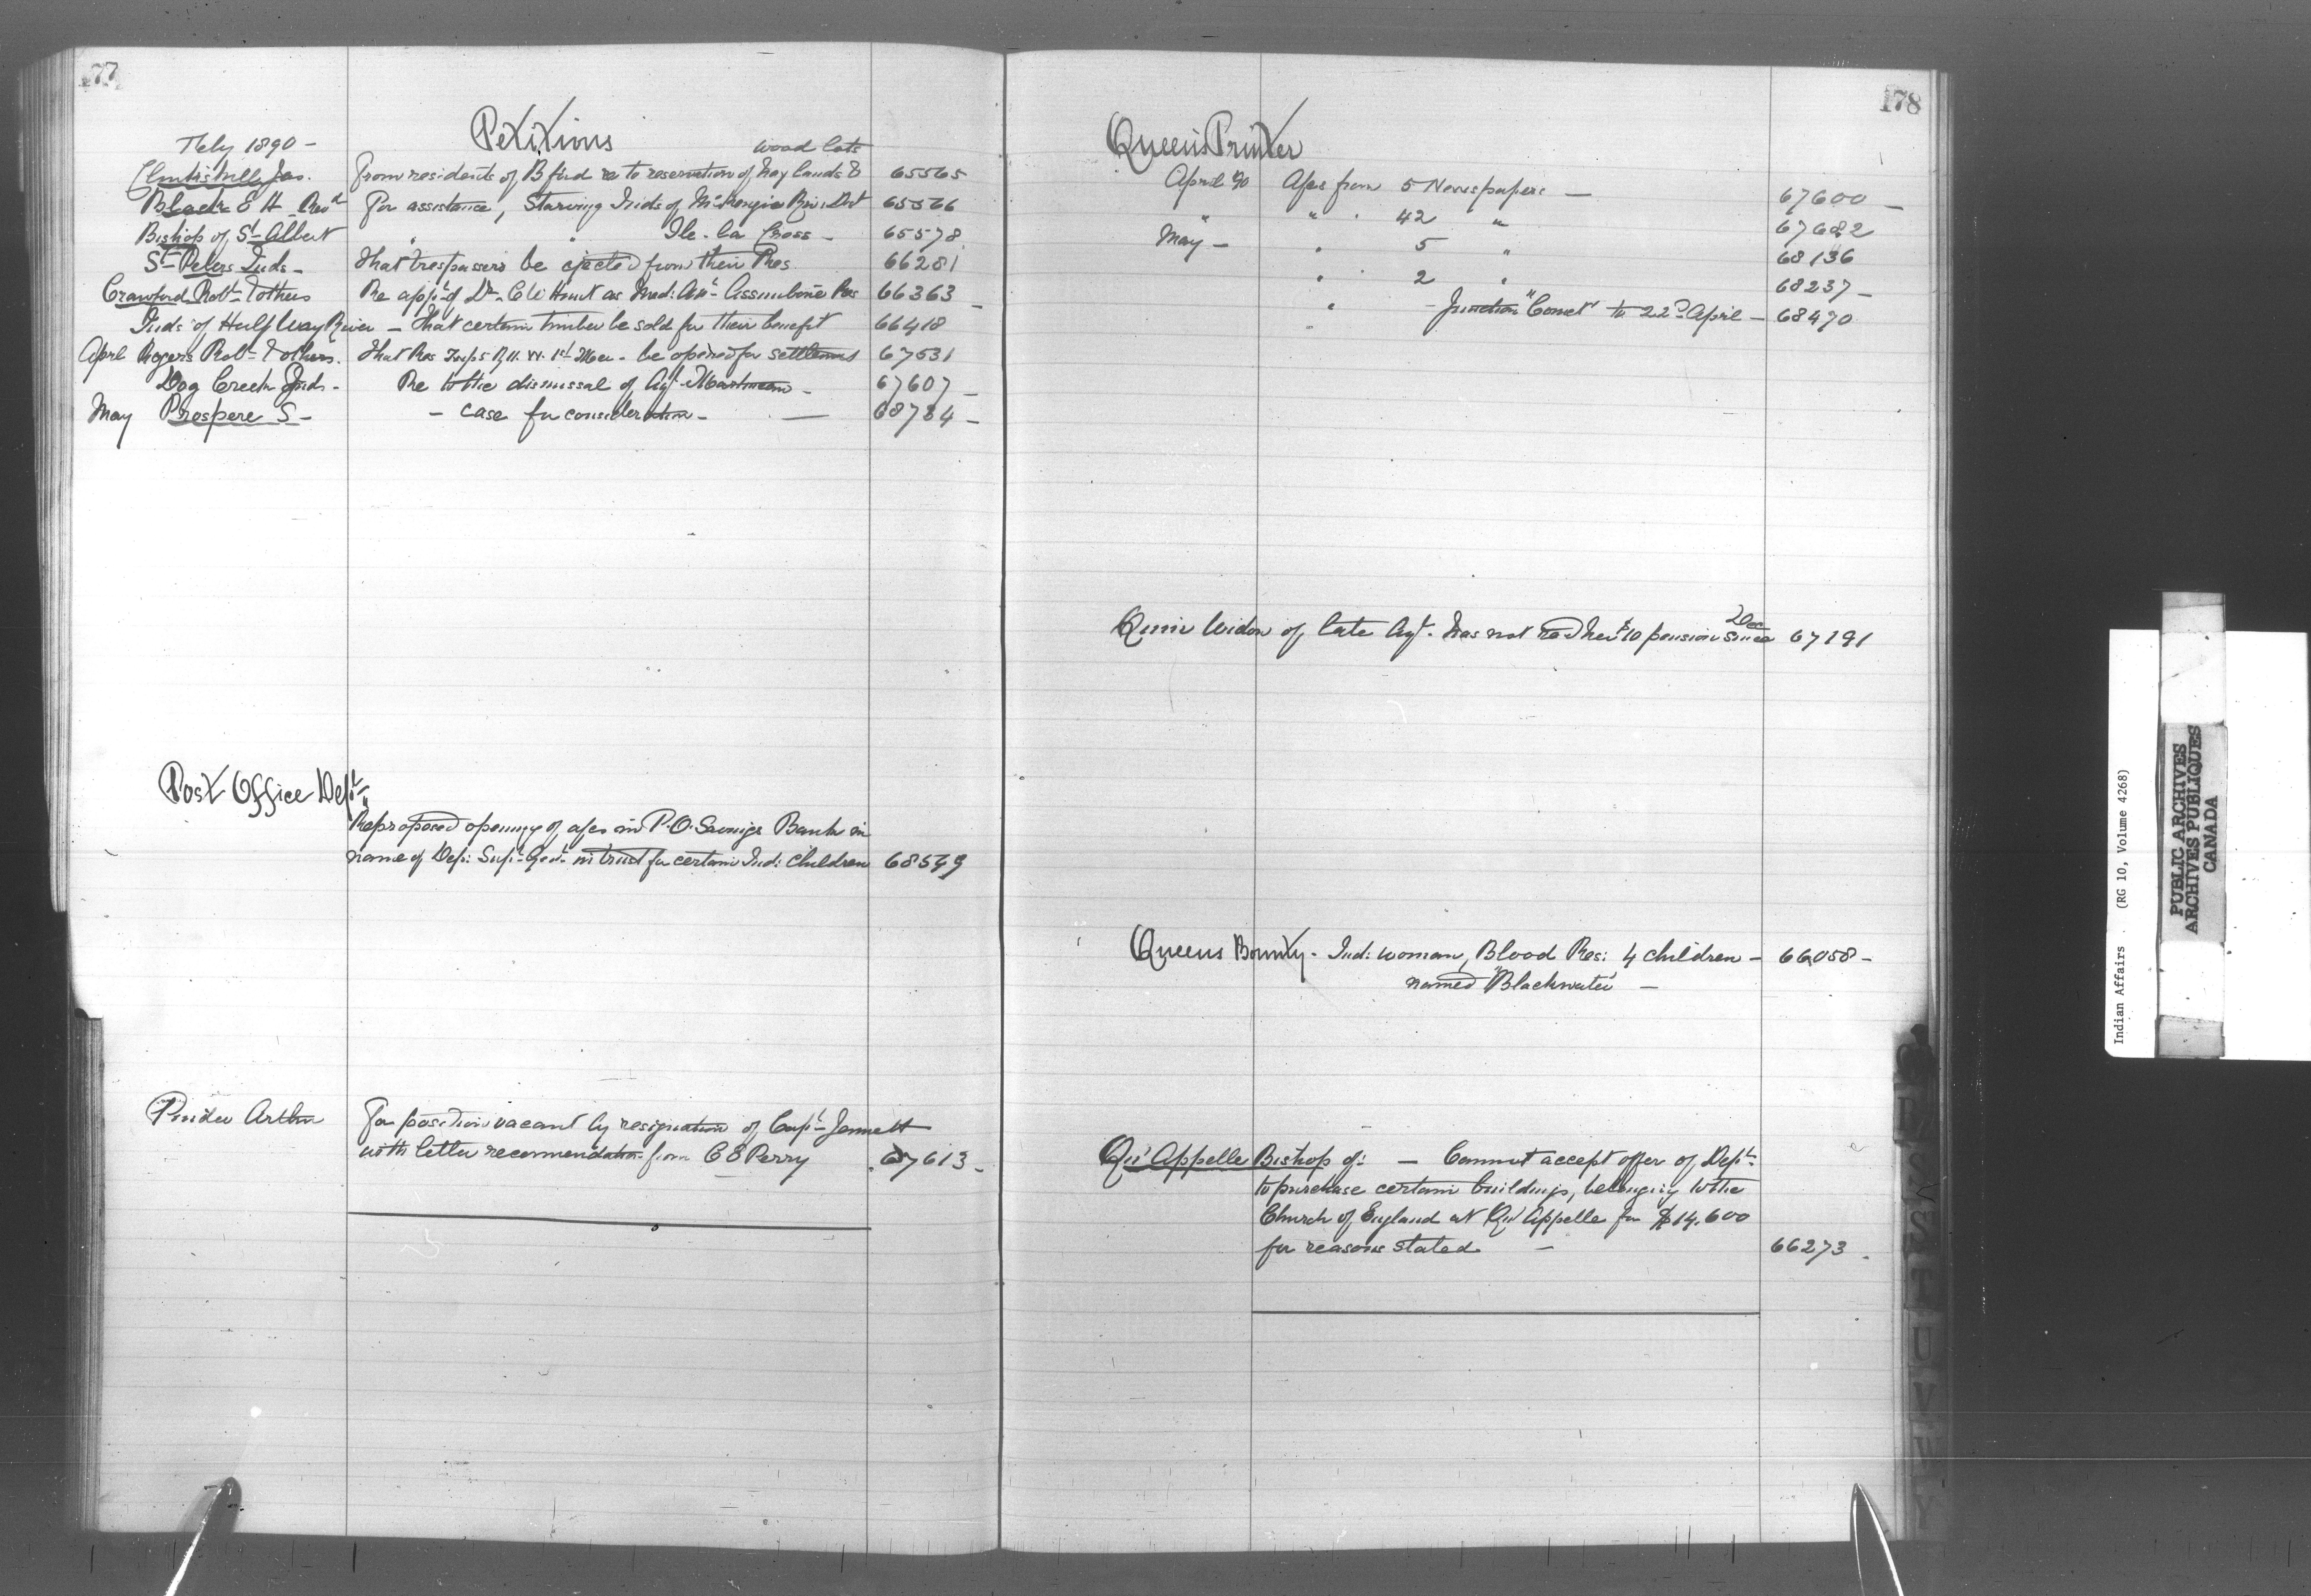 177
Petitions
Feby 1890 - wood lots
Jas. From residents of B'ford re to reservation of hay lands & 65565
Black E H Revd For assistance, Starving Inds of McKenzie Riv. Dist 65566
Bishop of St Albert " " Ile-la Cross - 65578
St Peters Inds - That trespassers be ejected from their Res 66281
Crawford Robt & others Re appt of Dr C W Hunt as Med: Att Assiniboine Res 66363 -
Inds of Half Way River - That certain timber be sold for their benefit 66418
April Rogers Robt & others. That Res be opened for settlement 67531
Dog Creek Inds - Re to the dismissal of Agt Martineau - 67607 -
May Prospere S - - case for consideration - - 68784 -
Post Office Dept
Re proposed opening of a/cs in P.O. Savings Bank in
name of Dep: Supt Genl in trust for certain Ind: children 68549
Pinder Arthur For position vacant by resignation of Capt Jemmett
with letter recommendation from C E Perry 67613 -
178
Queen's Printer
April 90 A/cs from 5 Newspapers - 67600 -
" " " 42 " 67682
May - " 5 " 68136
" 2 " 68237 -
" - Junction "Comet" to 22nd April - 68470
Dec
Quin Widow of late Agt. has not recd her $10 pension since 67191
Queens Bounty - Ind: woman, Blood Res: 4 children - 66058 -
named "Blackwater" -
Qu'Appelle Bishop of: - Cannot accept offer of Dept
to purchase certain buildings, belonging to the
Church of England at Qu'Appelle for $14,600
for reasons stated - 66273 -
R
S
T
U
V
W
Y
Indian Affairs . (RG 10, Volume 4268)
PUBLIC ARCHIVES
ARCHIVES PUBLIQUES
CANADA